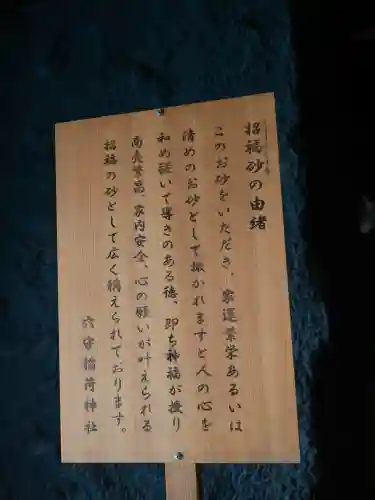 招福砂の由緒
このお砂をいただき、家運繁栄あるいは
清めのお砂として撒かれますと人の心を
和め続いて導きのある徳、即ち神福が授り
商売繁昌、家内安全、心の願いが叶えられる
招福の砂として広く稱えられております。
穴守稲荷神社